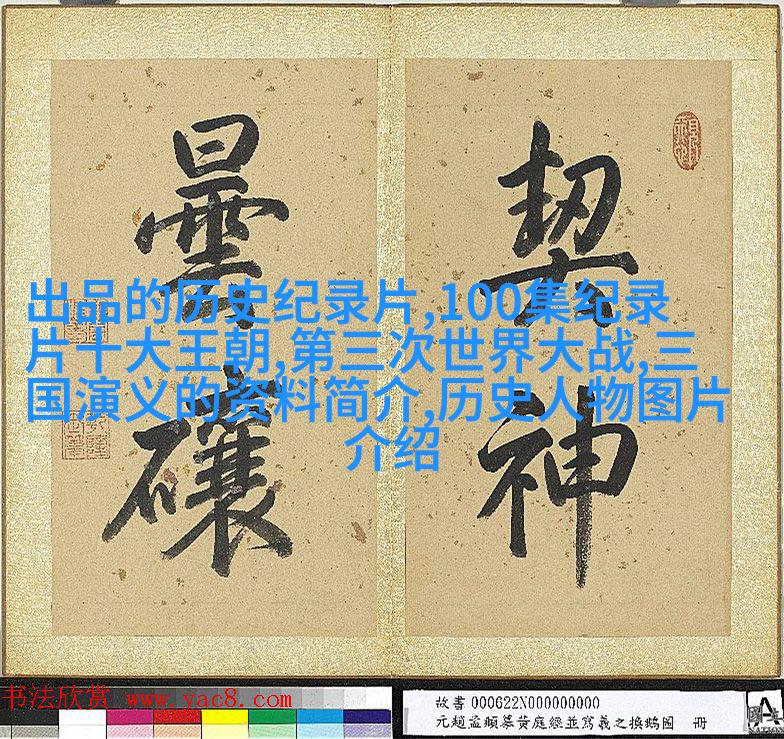 契
神
曇
出品的历史纪录片,100集纪录
片十大王朝,第三次世界大战,三
国演义的资料简介,历史人物图片
介绍
书法欣赏 www.yac8.com
故書 000622N000000000
元趙孟頫摹黃庭經並寫羲之換鵝圖 冊